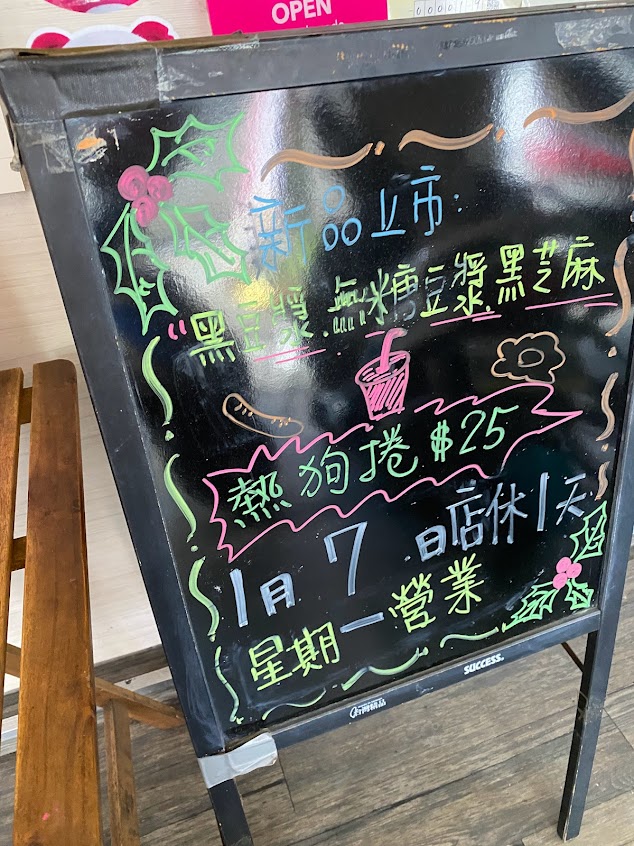 OPEN
新品上市:
"黑豆漿.無糖豆漿.黑芝麻
熱狗捲 $25
1月7日店休1天
星期一營業
SUCCESS.